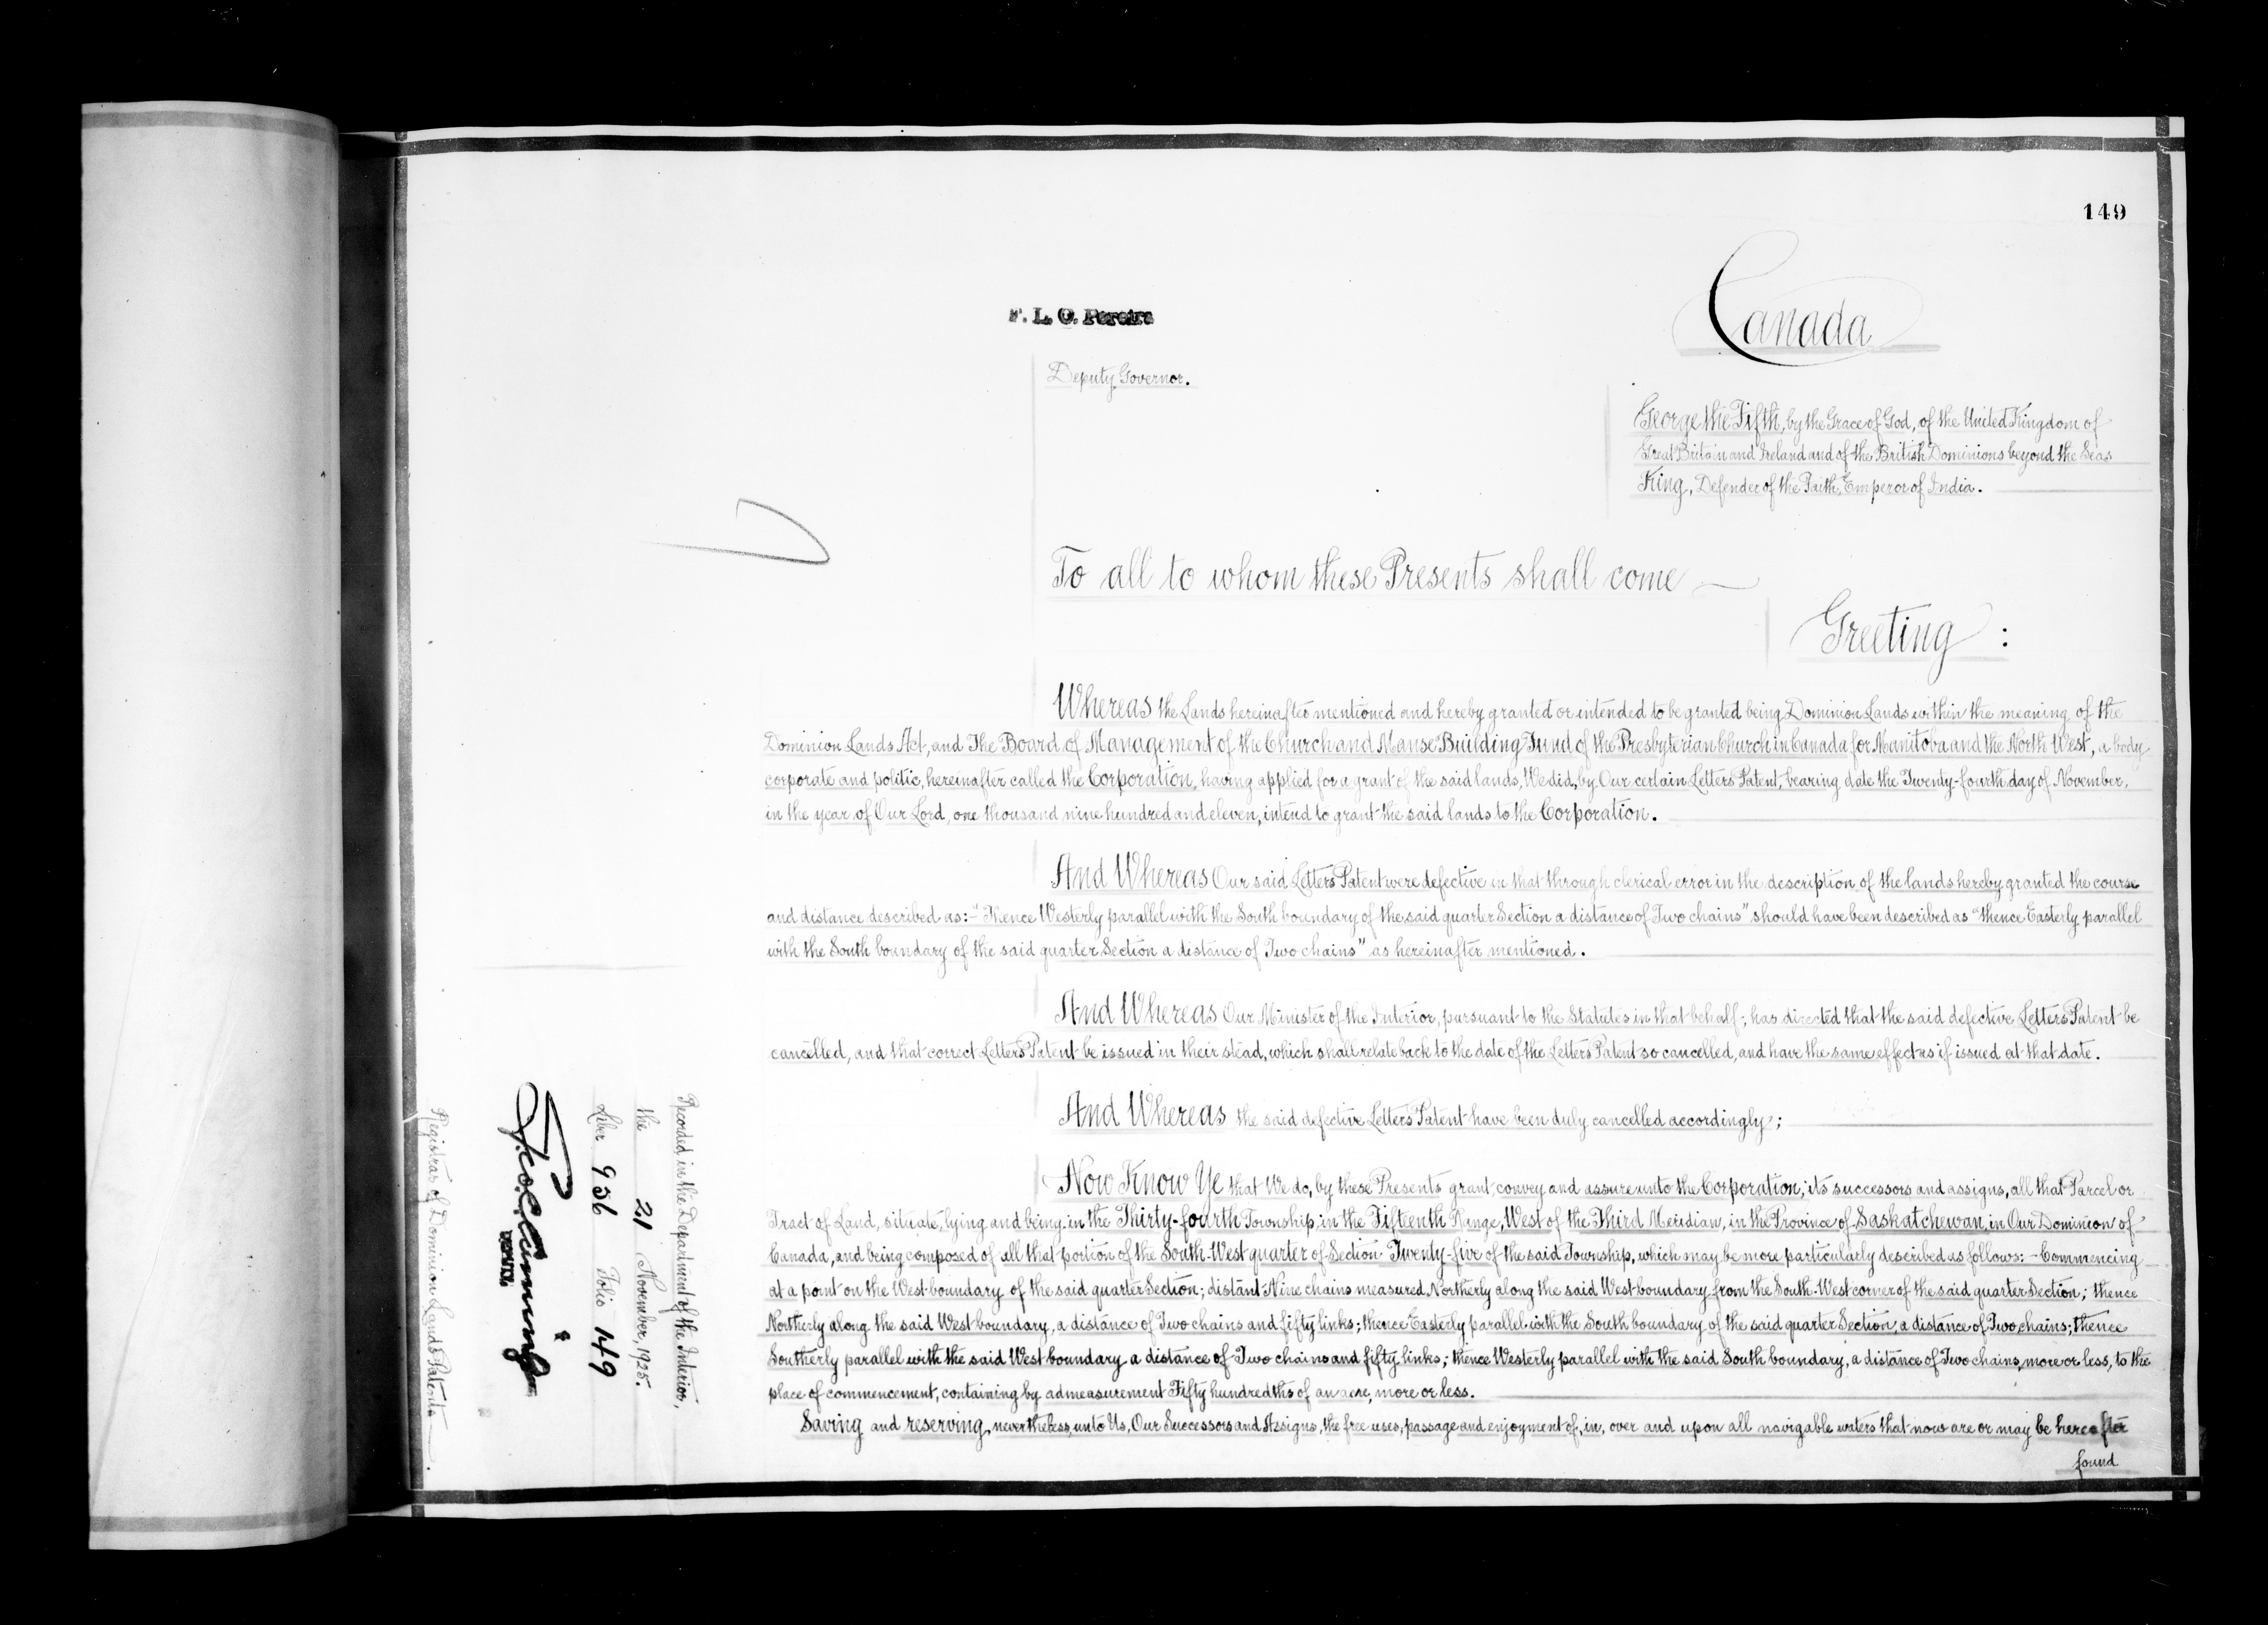 149
Canada
F. L. C. Pereira
Deputy Governor.
George the Fifth, by the Grace of God, of the United Kingdom of
Great Britain and Ireland and of the British Dominions beyond the Seas
King, Defender of the Faith, Emperor of India.
To all to whom these Presents shall come
Greeting:
Whereas the Lands hereinafter mentioned and hereby granted or intended to be granted being Dominion Lands within the meaning of the
Dominion Lands Act, and The Board of Management of the Church and Manse Building Fund of the Presbyterian Church in Canada for Manitoba and the North West, a body
corporate and politic, hereinafter called the Corporation, having applied for a grant of the said lands, We did, by Our certain Letters Patent, bearing date the Twenty-fourth day of November,
in the year of Our Lord, one thousand nine hundred and eleven, intend to grant the said lands to the Corporation.
And Whereas Our said Letters Patent were defective in that through clerical error in the description of the lands hereby granted the course
and distance described as:- "Thence Westerly parallel with the South boundary of the said quarter Section a distance of Two chains" should have been described as "thence Easterly parallel
with the South boundary of the said quarter Section a distance of Two chains" as hereinafter mentioned.
And Whereas Our Minister of the Interior, pursuant to the Statutes in that behalf, has directed that the said defective Letters Patent be
cancelled, and that correct Letters Patent be issued in their stead, which shall relate back to the date of the Letters Patent so cancelled, and have the same effect as if issued at that date.
And Whereas the said defective Letters Patent have been duly cancelled accordingly;
Now Know Ye that We do, by these Presents grant, convey and assure unto the Corporation, its successors and assigns, all that Parcel or
Tract of Land, situate, lying and being in the Thirty-fourth Township, in the Fifteenth Range, West of the Third Meridian, in the Province of Saskatchewan, in Our Dominion of
Canada, and being composed of all that portion of the South-West quarter of Section Twenty-five of the said Township, which may be more particularly described as follows:- Commencing
at a point on the West boundary of the said quarter Section; distant Nine chains measured Northerly along the said West boundary from the South-West corner of the said quarter Section; thence
Northerly along the said West boundary, a distance of Two chains and fifty links; thence Easterly parallel with the South boundary of the said quarter Section, a distance of Two chains; thence
Southerly parallel with the said West boundary a distance of Two chains and fifty links; thence Westerly parallel with the said South boundary, a distance of Two chains, more or less, to the
place of commencement, containing by admeasurement Fifty hundredths of an acre, more or less.
Saving and reserving, nevertheless, unto Us, Our Successors and Assigns, the free uses, passage and enjoyment of, in, over and upon all navigable waters that now are or may be hereafter
found
Recorded in the Department of the Interior,
the 21 November, 1925.
Liber 936 Folio 149
Registrar of Dominion Lands Patents